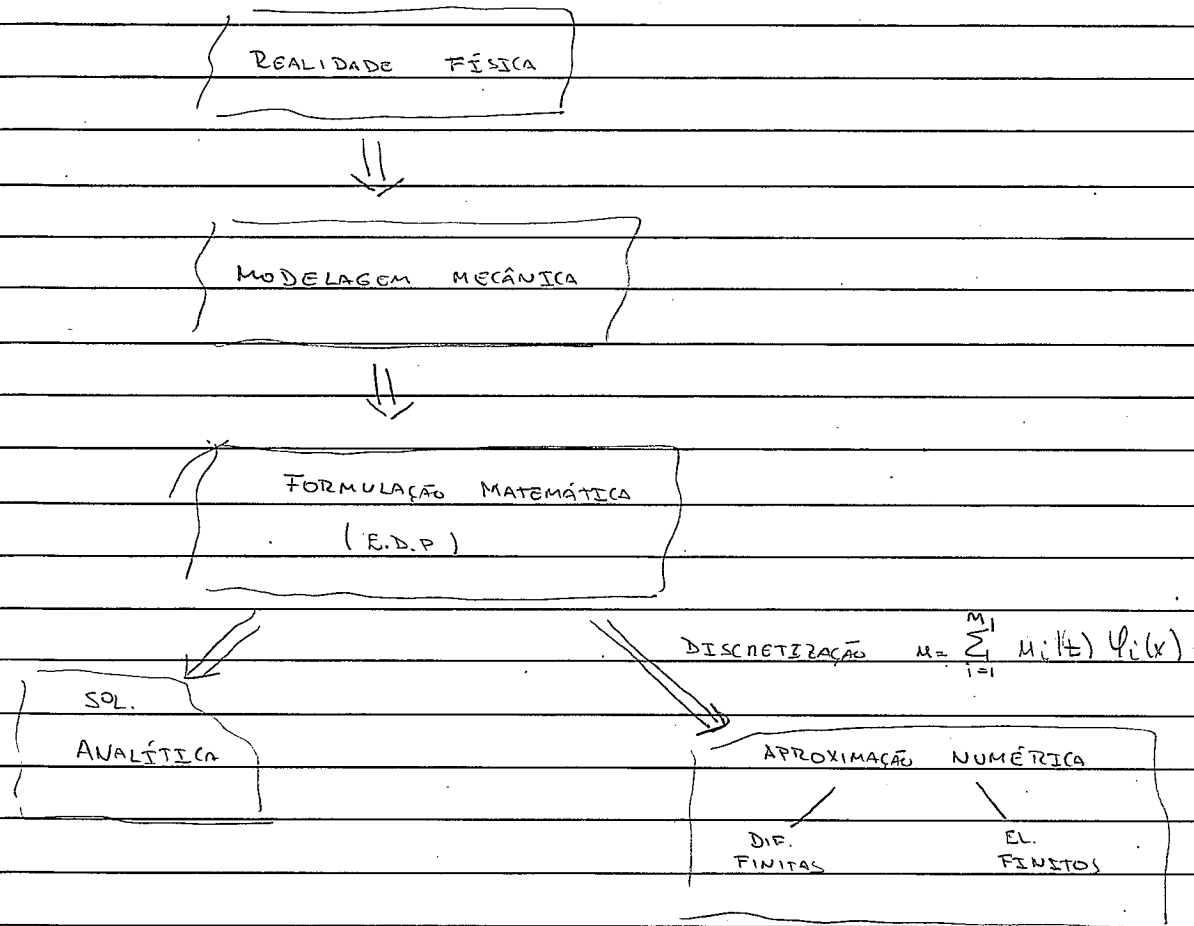 REALIDADE FÍSICA
MODELAGEM MECÂNICA
FORMULAÇÃO MATEMÁTICA
(E.D.P)
DISCRETIZAÇÃO u = \sum_{i=1}^{M} u_i(t) φ_i(x)
SOL.
ANALÍTICA
APROXIMAÇÃO NUMÉRICA
DIF. EL.
FINITAS FINITOS